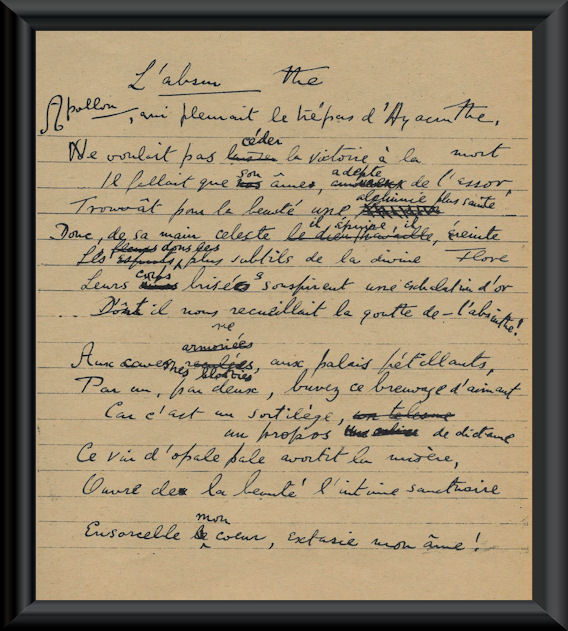 L'absinthe
Apollon, qui pleurait le trépas d'Hyacinthe,
Ne voulait pas céder la victoire à la mort
Il fallait que son âme, adepte de l'essor,
Trouvât pour la beauté une alchimie plus sainte
Donc, de sa main celeste il épuise, il éreinte
Les dons les plus subtils de la divine Flore
Leurs corps brisés soupirent une exhalation d'or
Dont il nous recueillait la goutte de - l'absinthe!
Aux cavernes blotties, aux palais pétillants,
Par un, par deux, buvez ce breuvage d'aimant
Car c'est un sortilège,
un propos de dictame
Ce vin d'opale pale avortit la misère,
Ouvre de la beauté l'intime sanctuaire
Ensorcelle mon coeur, extasie mon âme!